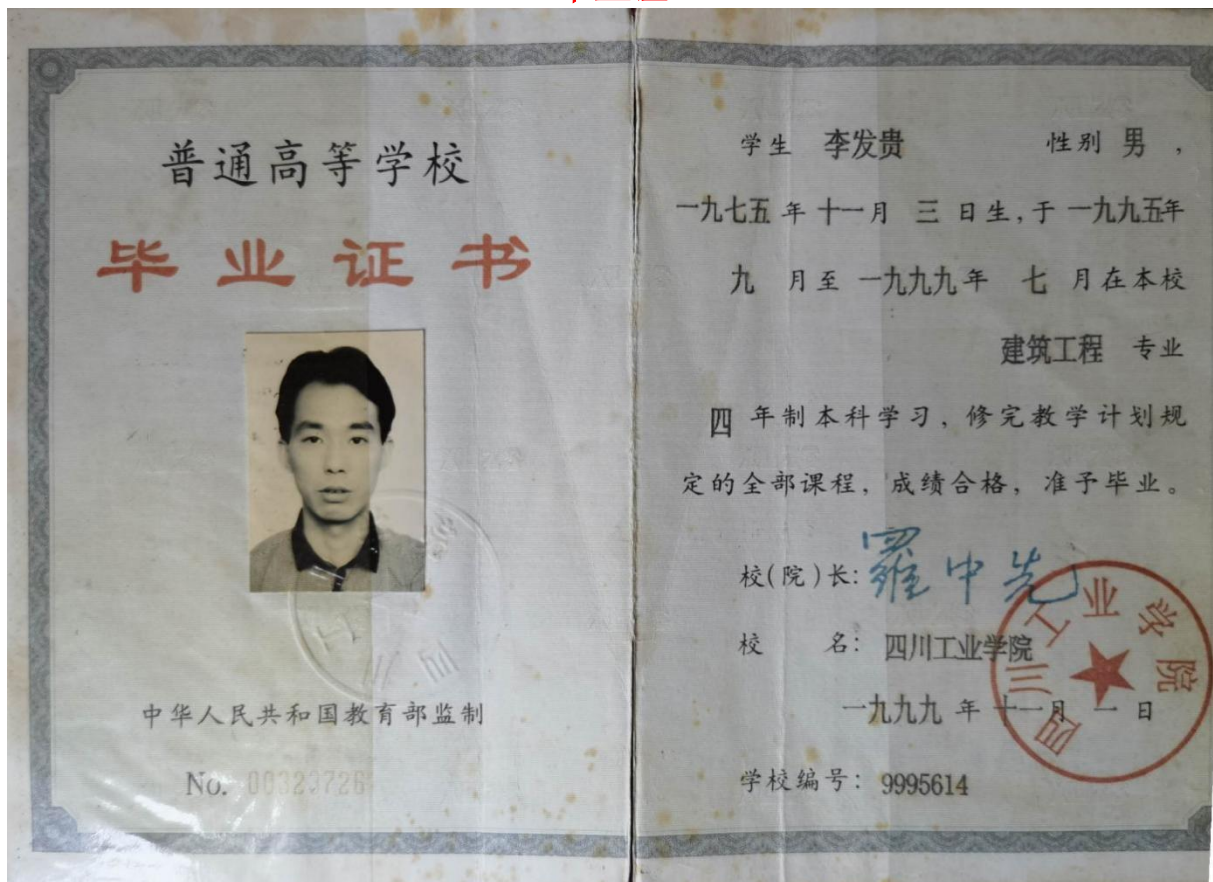 普通高等学校
毕业证书
中华人民共和国教育部监制
No. 00323726
学生 李发贵 性别 男,
一九七五年十一月 三 日生,于一九九五年
九 月至一九九九年 七 月在本校
建筑工程 专业
四 年制本科学习,修完教学计划规
定的全部课程,成绩合格,准予毕业。
校(院)长: 羅中先
校 名: 四川工业学院
一九九九 年 十一月 一 日
四川工业学院
学校编号: 9995614